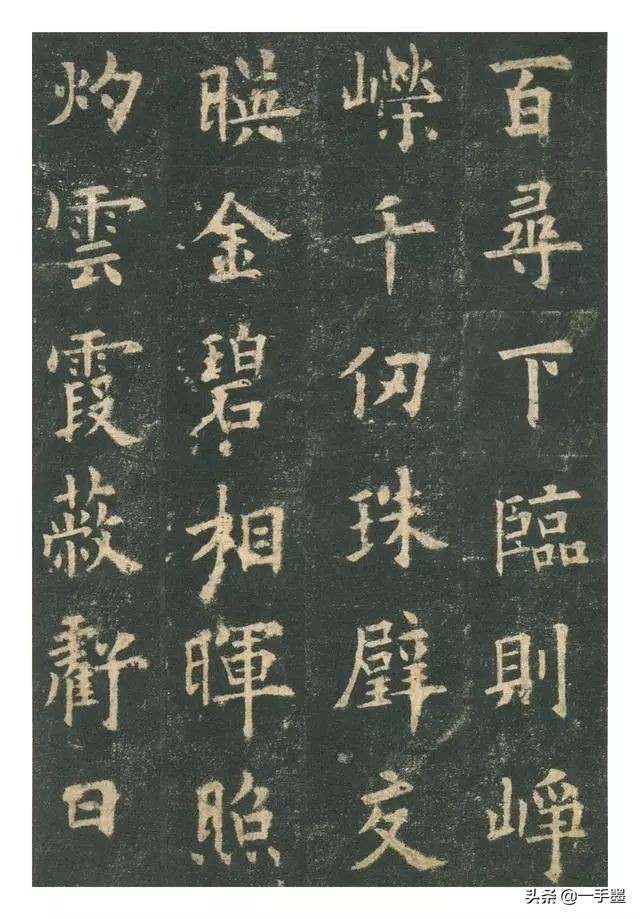 百尋下臨則崢
嶸千仞珠璧交
暎金碧相暉照
灼雲霞蔽虧日
头条 @一手墨